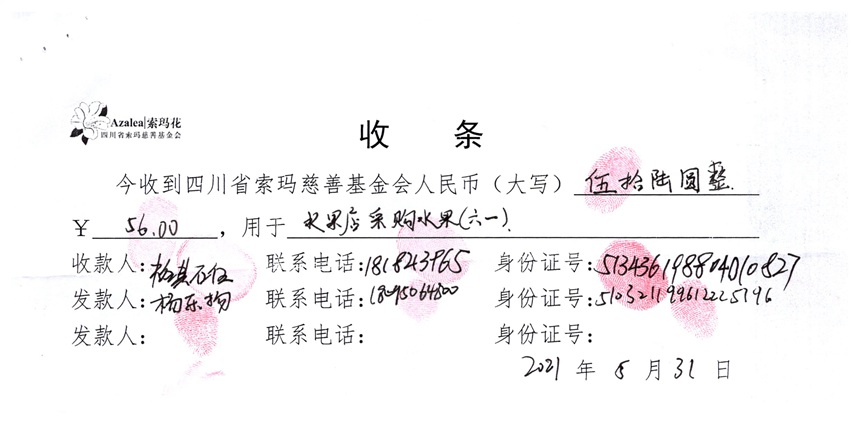 Azalea|索玛花
四川省索玛慈善基金会
收 条
今收到四川省索玛慈善基金会人民币（大写）伍拾陆圆整
￥ 56.00 ，用于 水果店采购水果(六一).
收款人： 联系电话： 身份证号：513436198804010827
发款人： 联系电话： 身份证号：510321199612225196
发款人： 联系电话： 身份证号：
2021 年 5 月 31 日